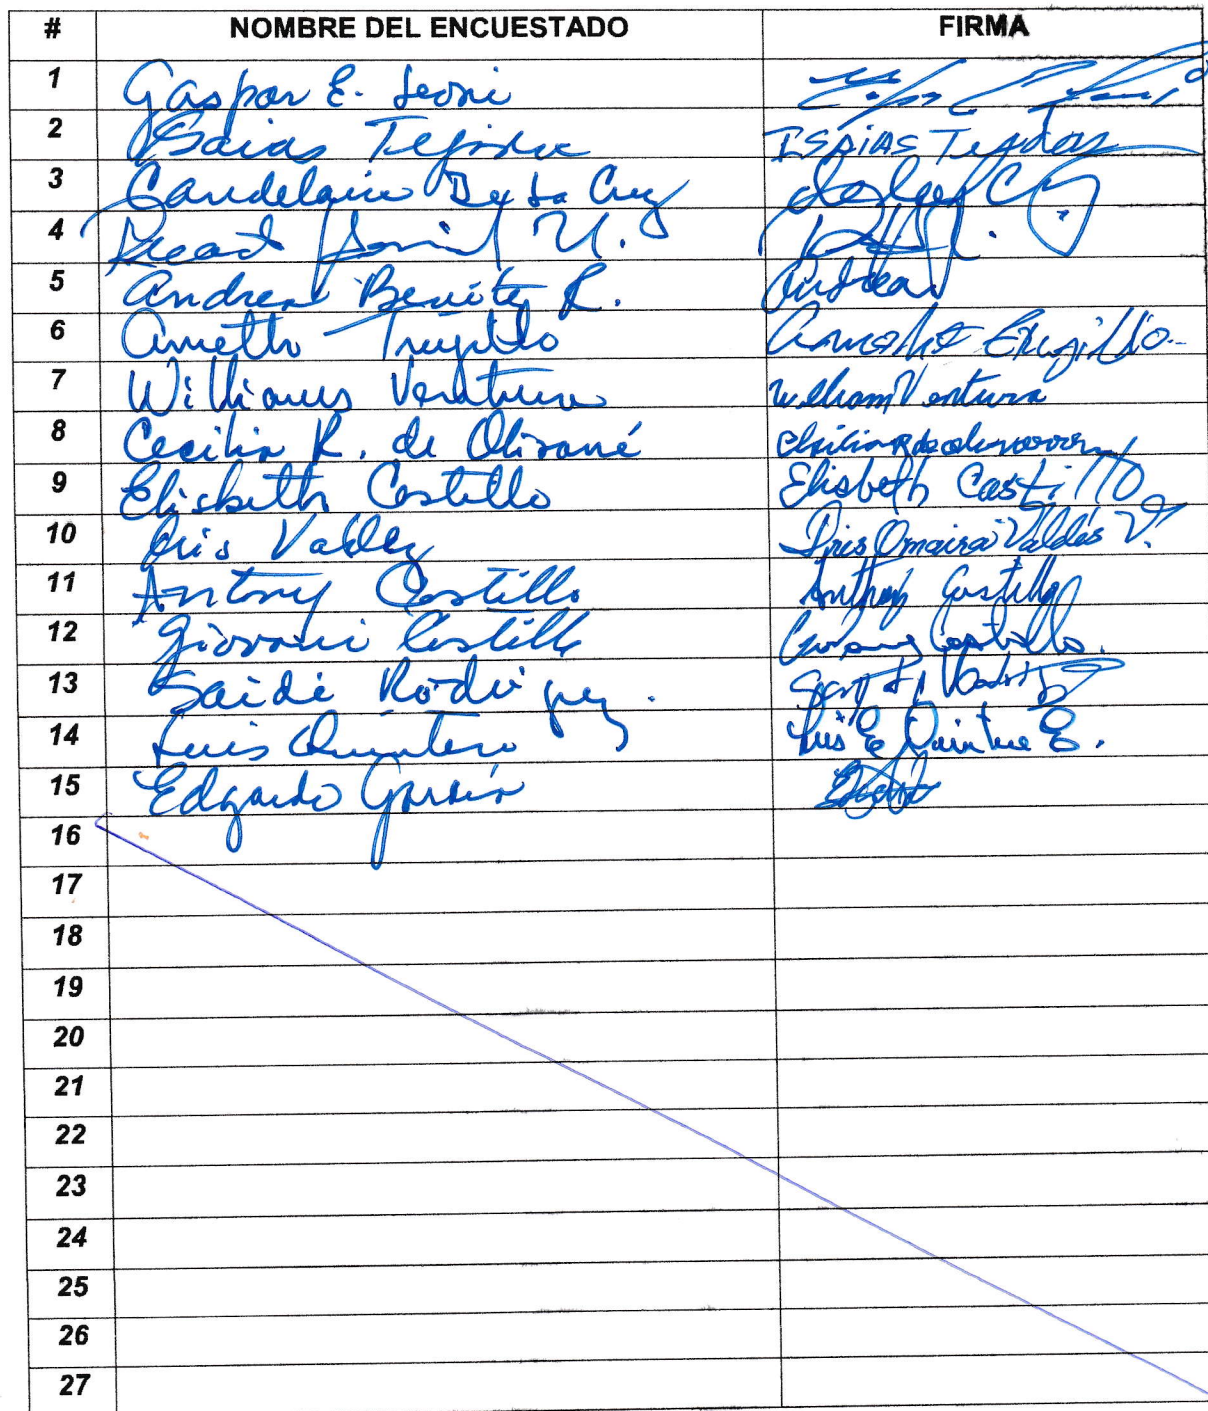 # NOMBRE DEL ENCUESTADO FIRMA
1 Gaspar E. Leoni
2 Isaias Tejada ISAIAS Tejada
3 Candelario De La Cruz
4
5 Andrea Benitez R. Andrea
6 Anetth Trujillo
7 Williams Ventura William Ventura
8 Cecilia R. de
9 Elisbeth Castillo Elisbeth Castillo
10 Iris Valdez Iris Omaira Valdés V.
11 Antony Castillo Anthony Castillo
12 Giovani Castillo Castillo.
13 Saidé Rodriguez.
14 Luis Quintero Luis E Quintero E.
15 Edgardo García
16
17
18
19
20
21
22
23
24
25
26
27